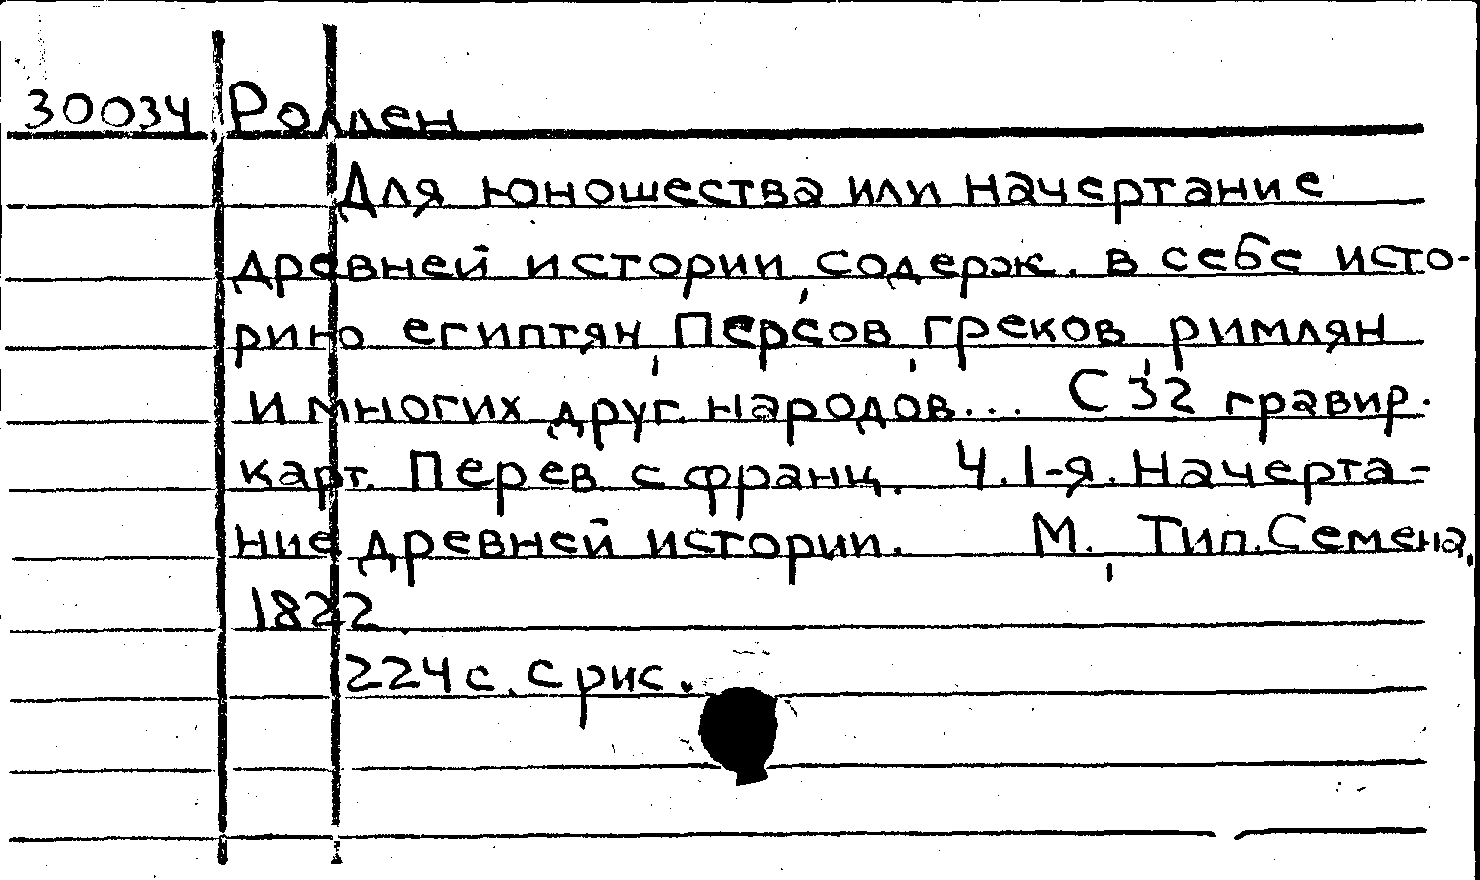 30034 Роллен
Для юношества или начертание
древней истории, содерж. в себе исто-
рию египтян, Персов, греков, римлян
и многих друг. народов... С 32 гравир.
карт. Перев с франц. Ч.1-я. Начерта-
ние древней истории. М., Тип. Семена,
1822.
224 с. с рис.